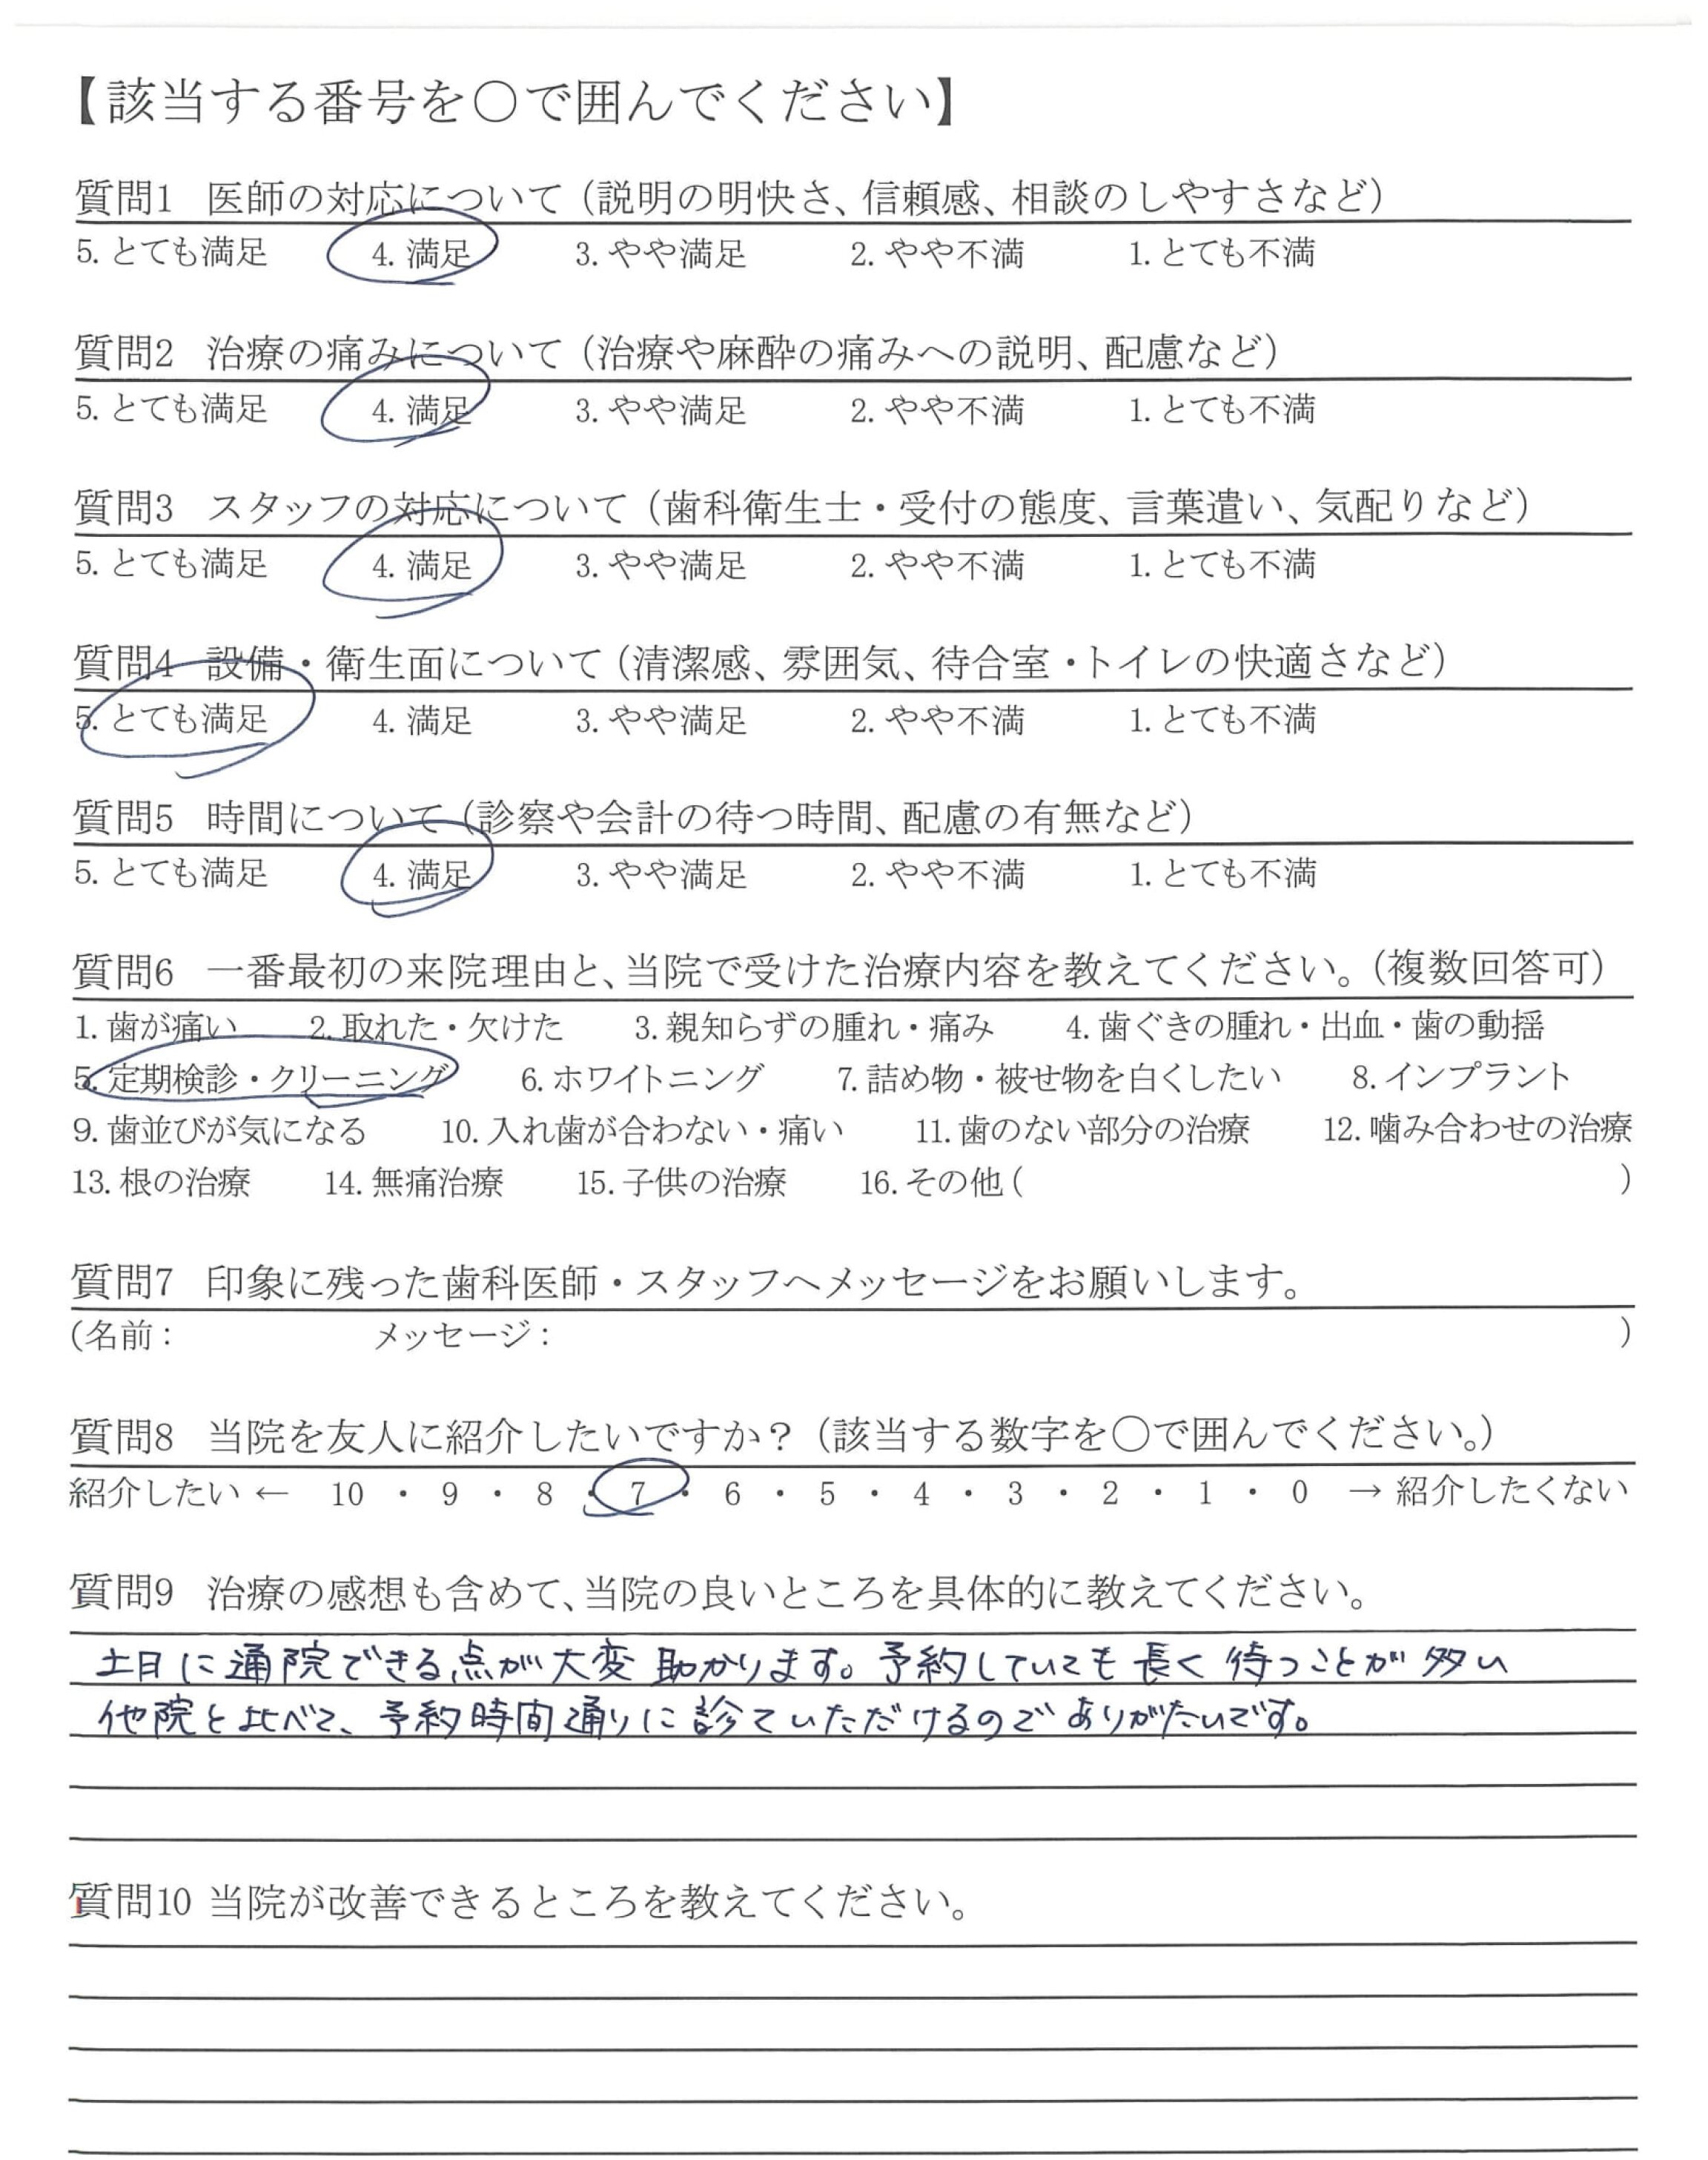 【該当する番号を〇で囲んでください】
質問1 医師の対応について（説明の明快さ、信頼感、相談のしやすさなど）
5. とても満足 4. 満足 3. やや満足 2. やや不満 1. とても不満
質問2 治療の痛みについて（治療や麻酔の痛みへの説明、配慮など）
5. とても満足 4. 満足 3. やや満足 2. やや不満 1. とても不満
質問3 スタッフの対応について（歯科衛生士・受付の態度、言葉遣い、気配りなど）
5. とても満足 4. 満足 3. やや満足 2. やや不満 1. とても不満
質問4 設備・衛生面について（清潔感、雰囲気、待合室・トイレの快適さなど）
5. とても満足 4. 満足 3. やや満足 2. やや不満 1. とても不満
質問5 時間について（診察や会計の待つ時間、配慮の有無など）
5. とても満足 4. 満足 3. やや満足 2. やや不満 1. とても不満
質問6 一番最初の来院理由と、当院で受けた治療内容を教えてください。（複数回答可）
1. 歯が痛い 2. 取れた・欠けた 3. 親知らずの腫れ・痛み 4. 歯ぐきの腫れ・出血・歯の動揺
5. 定期検診・クリーニング 6. ホワイトニング 7. 詰め物・被せ物を白くしたい 8. インプラント
9. 歯並びが気になる 10. 入れ歯が合わない・痛い 11. 歯のない部分の治療 12. 噛み合わせの治療
13. 根の治療 14. 無痛治療 15. 子供の治療 16. その他（ ）
質問7 印象に残った歯科医師・スタッフへメッセージをお願いします。
（名前： メッセージ： ）
質問8 当院を友人に紹介したいですか？（該当する数字を〇で囲んでください。）
紹介したい ← 10 ・ 9 ・ 8 ・ 7 ・ 6 ・ 5 ・ 4 ・ 3 ・ 2 ・ 1 ・ 0 → 紹介したくない
質問9 治療の感想も含めて、当院の良いところを具体的に教えてください。
土日に通院できる点が大変助かります。予約していても長く待つことが多い
他院と比べて、予約時間通りに診ていただけるのでありがたいです。
質問10 当院が改善できるところを教えてください。